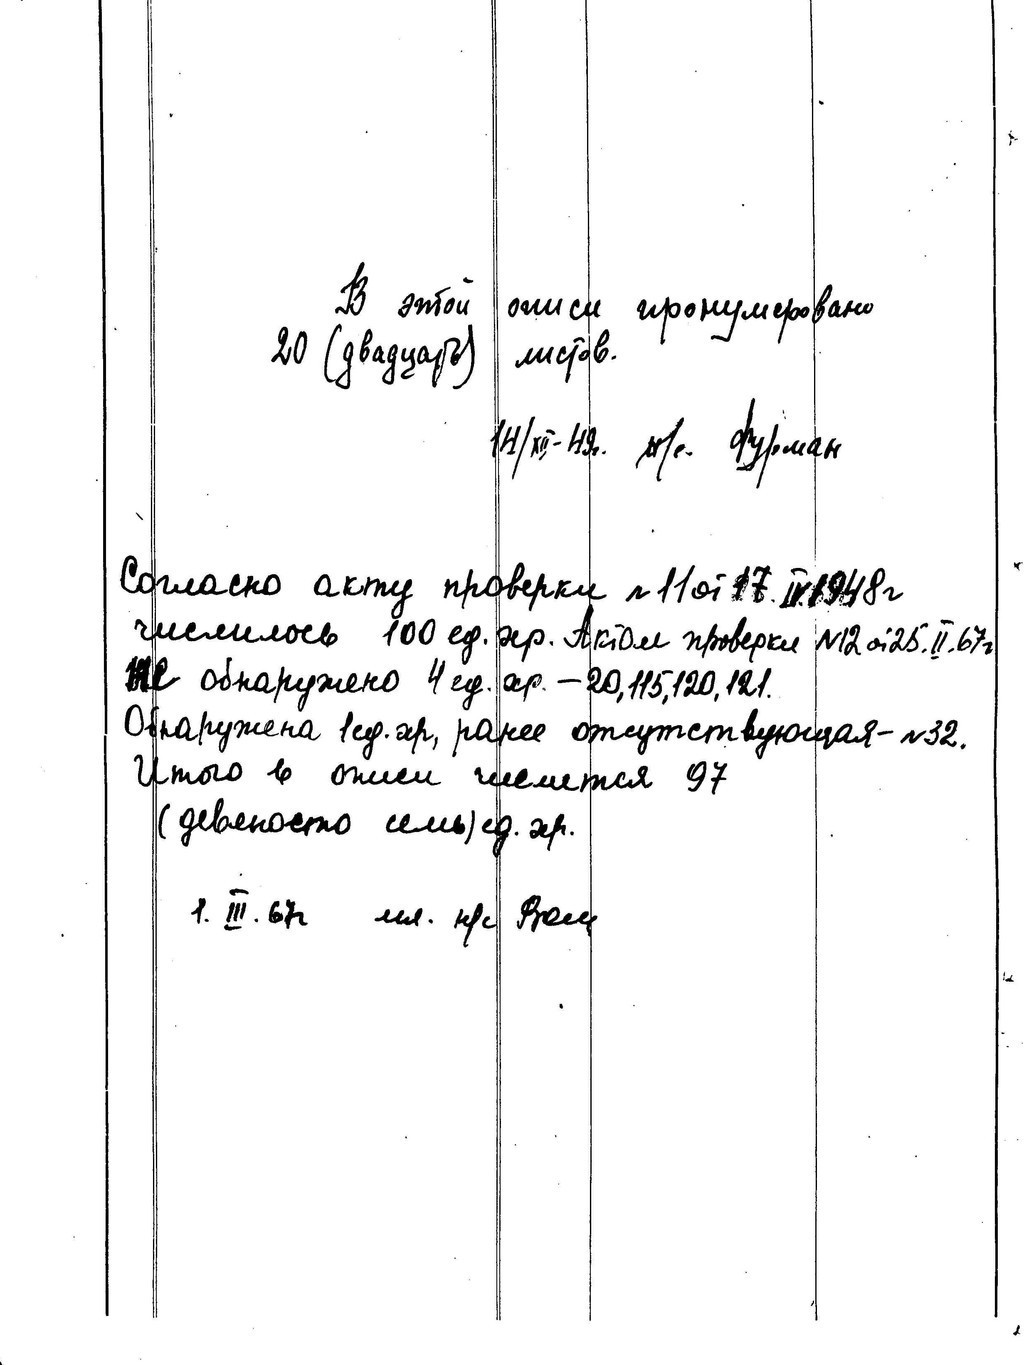 В этой описи пронумеровано
20 (двадцать) листов.
14/XII-49г. н/с. Фурман
Согласно акту проверки №11 от 17.IV.1948г
числилось 100 ед. хр. Актом проверки №12 от 25.II.67г
не обнаружено 4 ед. хр. – 20, 115, 120, 121.
Обнаружена 1 ед. хр, ранее отсутствующая – №32.
Итого в описи числится 97
(девяносто семь) ед. хр.
1.III.67г мл. н/с